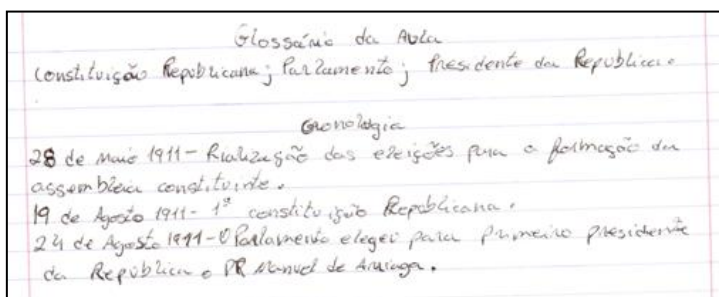 Glossário da Aula
Constituição Republicana; Parlamento; Presidente da República.
Cronologia
28 de Maio 1911 - Realização das eleições para a formação da
assembleia constituinte.
19 de Agosto 1911 - 1ª constituição Republicana.
24 de Agosto 1911 - O Parlamento elegeu para primeiro presidente
da República o PR Manuel de Arriaga.